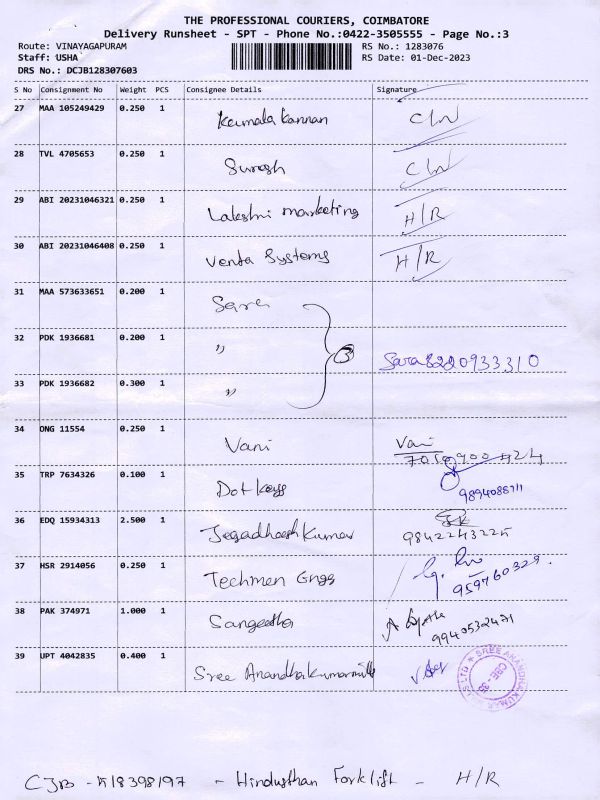 THE PROFESSIONAL COURIERS, COIMBATORE
Delivery Runsheet - SPT - Phone No.:0422-3505555 - Page No.:3
Route: VINAYAGAPURAM RS No.: 1283076
Staff: USHA RS Date: 01-Dec-2023
DRS No.: DCJB128307603
S No Consignment No Weight PCS Consignee Details Signature
27 MAA 105249429 0.250 1 Kamala Kannan C/N
28 TVL 4705653 0.250 1 Suresh C/N
29 ABI 20231046321 0.250 1 Lakshmi marketing H/R
30 ABI 20231046408 0.250 1 Venta Systems H/R
31 MAA 573633651 0.200 1 Sara
32 PDK 1936681 0.200 1 " 3 Sara 8220933310
33 PDK 1936682 0.300 1 "
34 ONG 11554 0.250 1 Vani Vani
35 TRP 7634326 0.100 1 Dot Keys
36 EDQ 15934313 2.500 1 Jegadheesh Kumar 9842243225
37 HSR 2914056 0.250 1 Techmen Engg 959760329
38 PAK 374971 1.000 1 Sangeetha 9940532471
39 UPT 4042835 0.400 1 Sree Anandhakumar mills
CJB - K18398197 - Hindusthan Forklift - H/R